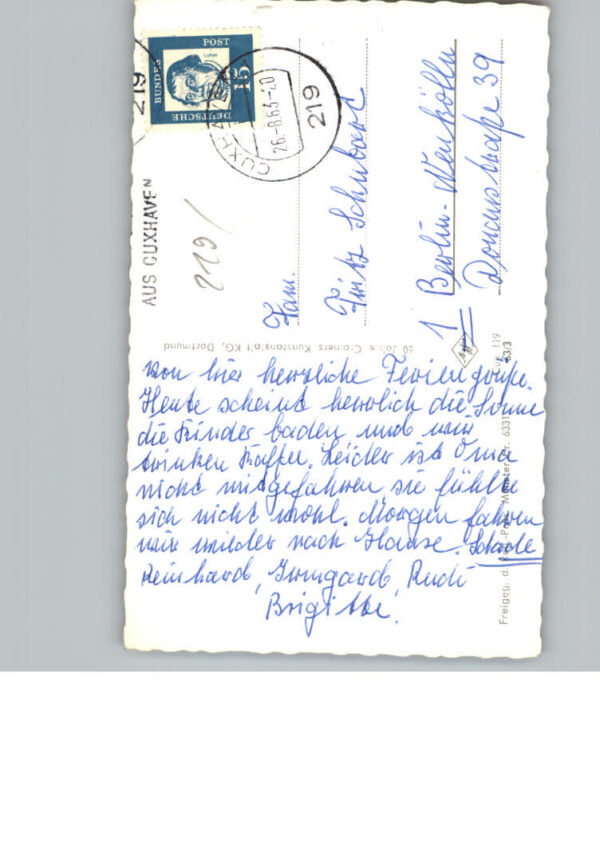 von hier herzliche Feriengrüße.
Heute scheint herrlich die Sonne
die Kinder baden und wir
trinken Kaffee. Leider ist Oma
nicht mitgefahren sie fühlte
sich nicht wohl. Morgen fahren
wir wieder nach Hause. Schade
Reinhard, Irmgard, Rudi
Brigitte.
AUS CUXHAVEN
219
CUXHAVEN
26-8.63-20
219
DEUTSCHE
BUNDES
POST
15
219/
Fam.
Fritz Schubart
1 Berlin-Neukölln
Donaustraße 39
60 Jahre Cramers Kunstanstalt KG, Dortmund
Cux 119
63/3
Freigeg. d. Münster